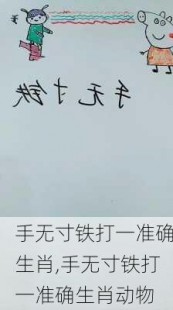 手
手无寸铁
手无寸铁打一准确
生肖,手无寸铁打
一准确生肖动物